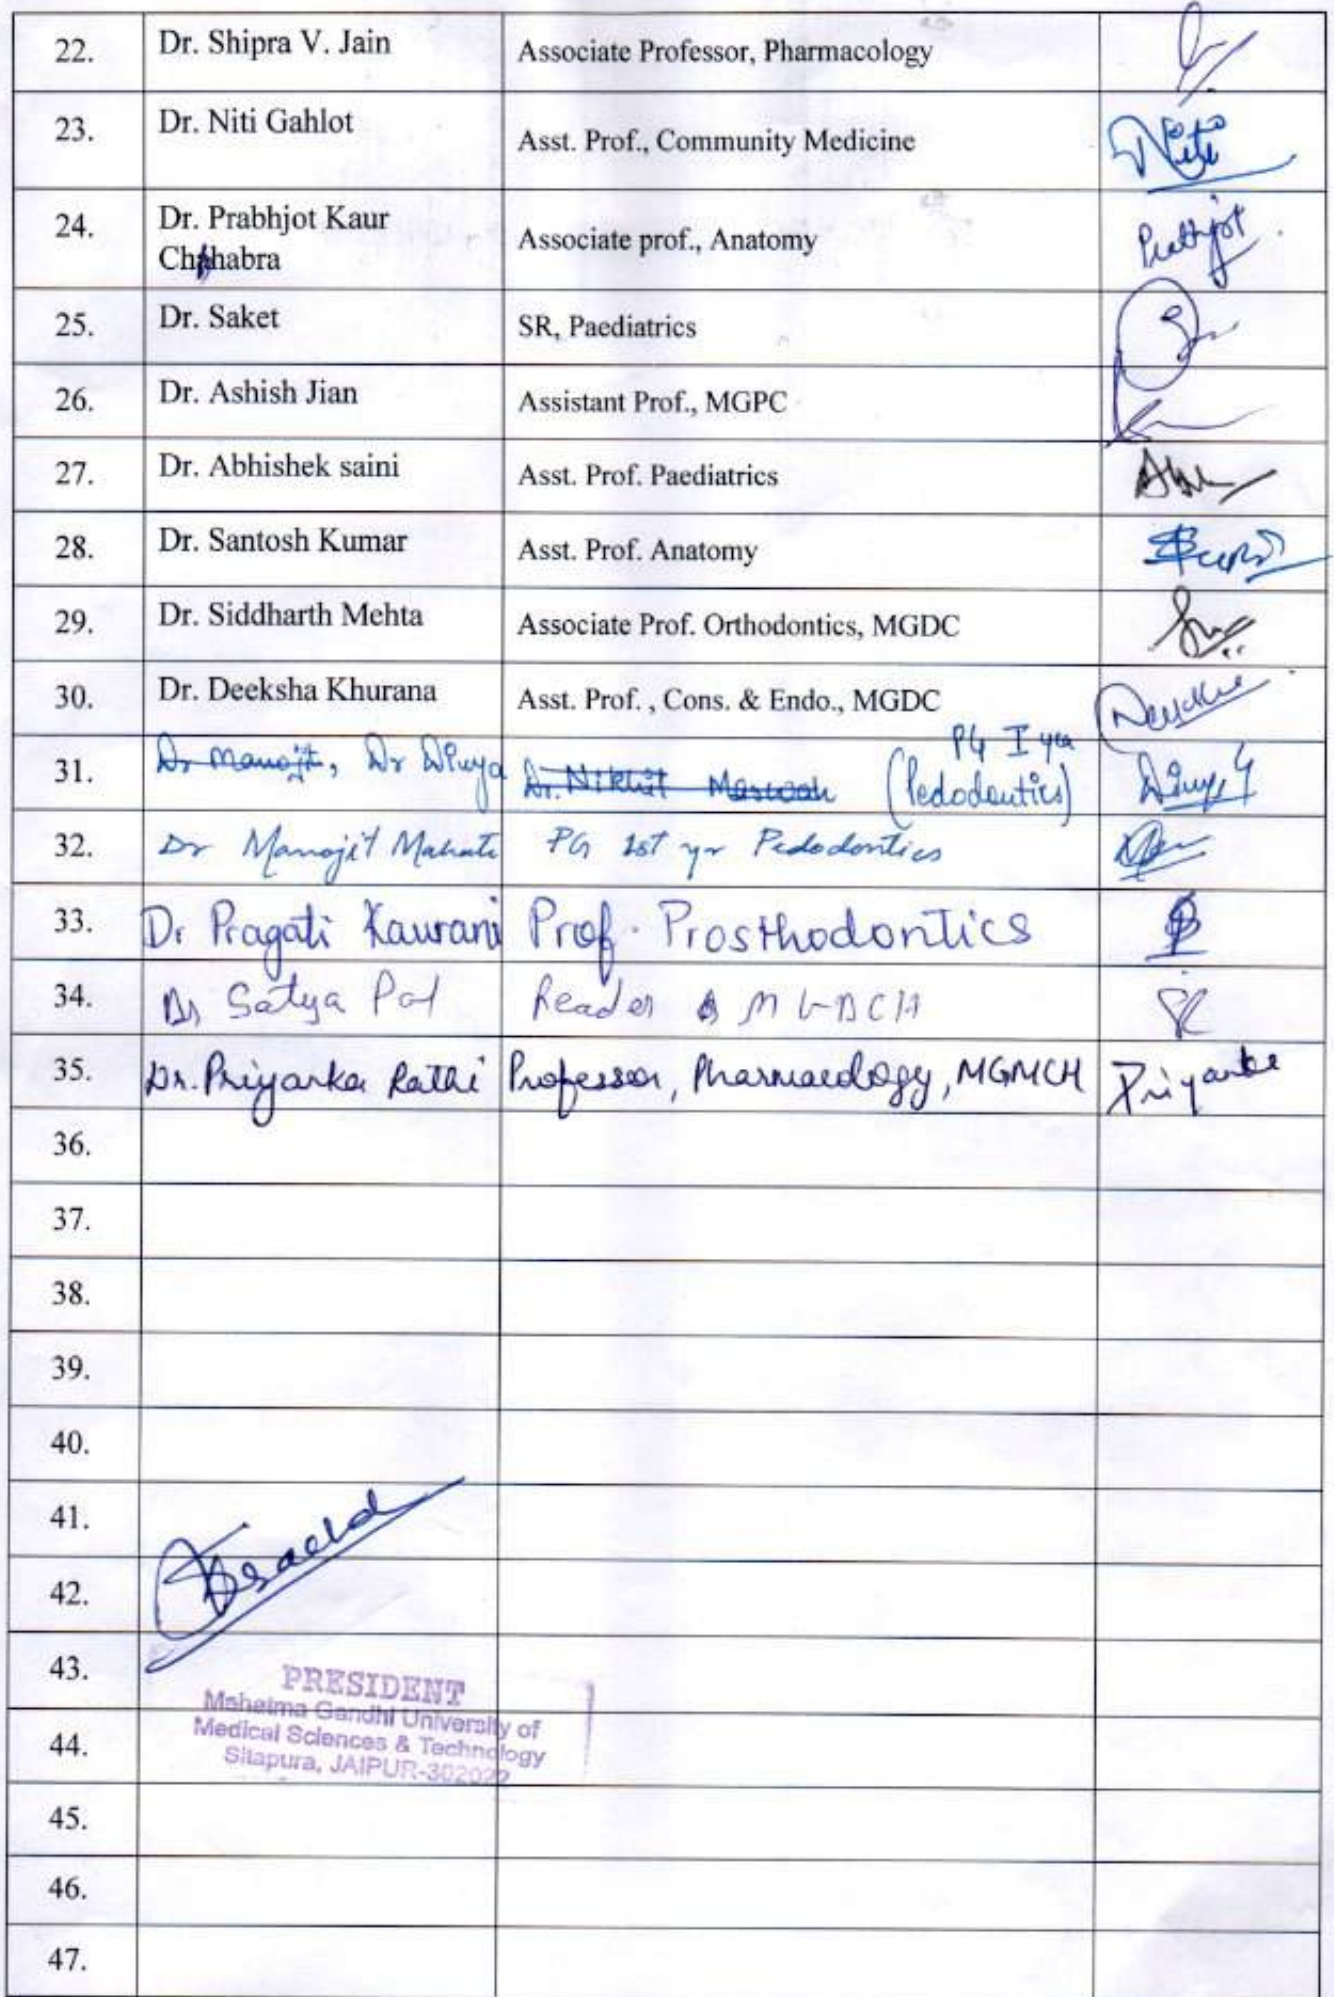 22. Dr. Shipra V. Jain Associate Professor, Pharmacology
23. Dr. Niti Gahlot Asst. Prof., Community Medicine Niti
24. Dr. Prabhjot Kaur Associate prof., Anatomy Prabhjot
Chhabra
25. Dr. Saket SR, Paediatrics
26. Dr. Ashish Jian Assistant Prof., MGPC
27. Dr. Abhishek saini Asst. Prof. Paediatrics
28. Dr. Santosh Kumar Asst. Prof. Anatomy
29. Dr. Siddharth Mehta Associate Prof. Orthodontics, MGDC
30. Dr. Deeksha Khurana Asst. Prof. , Cons. & Endo., MGDC
PG I yea
31. Dr Manojit, Dr Divya Dr. Nikhil Marwah (Pedodontics)
32. Dr Manojit Mahata PG 1st yr Pedodontics
33. Dr Pragati Kaurani Prof. Prosthodontics
34. Dr Satya Pal Reader MGDCH
35. Dr. Priyanka Rathi Professor, Pharmacology, MGMCH Priyanka
36.
37.
38.
39.
40.
41.
42.
43.
PRESIDENT
Mahatma Gandhi University of
44. Medical Sciences & Technology
Sitapura, JAIPUR-302022
45.
46.
47.